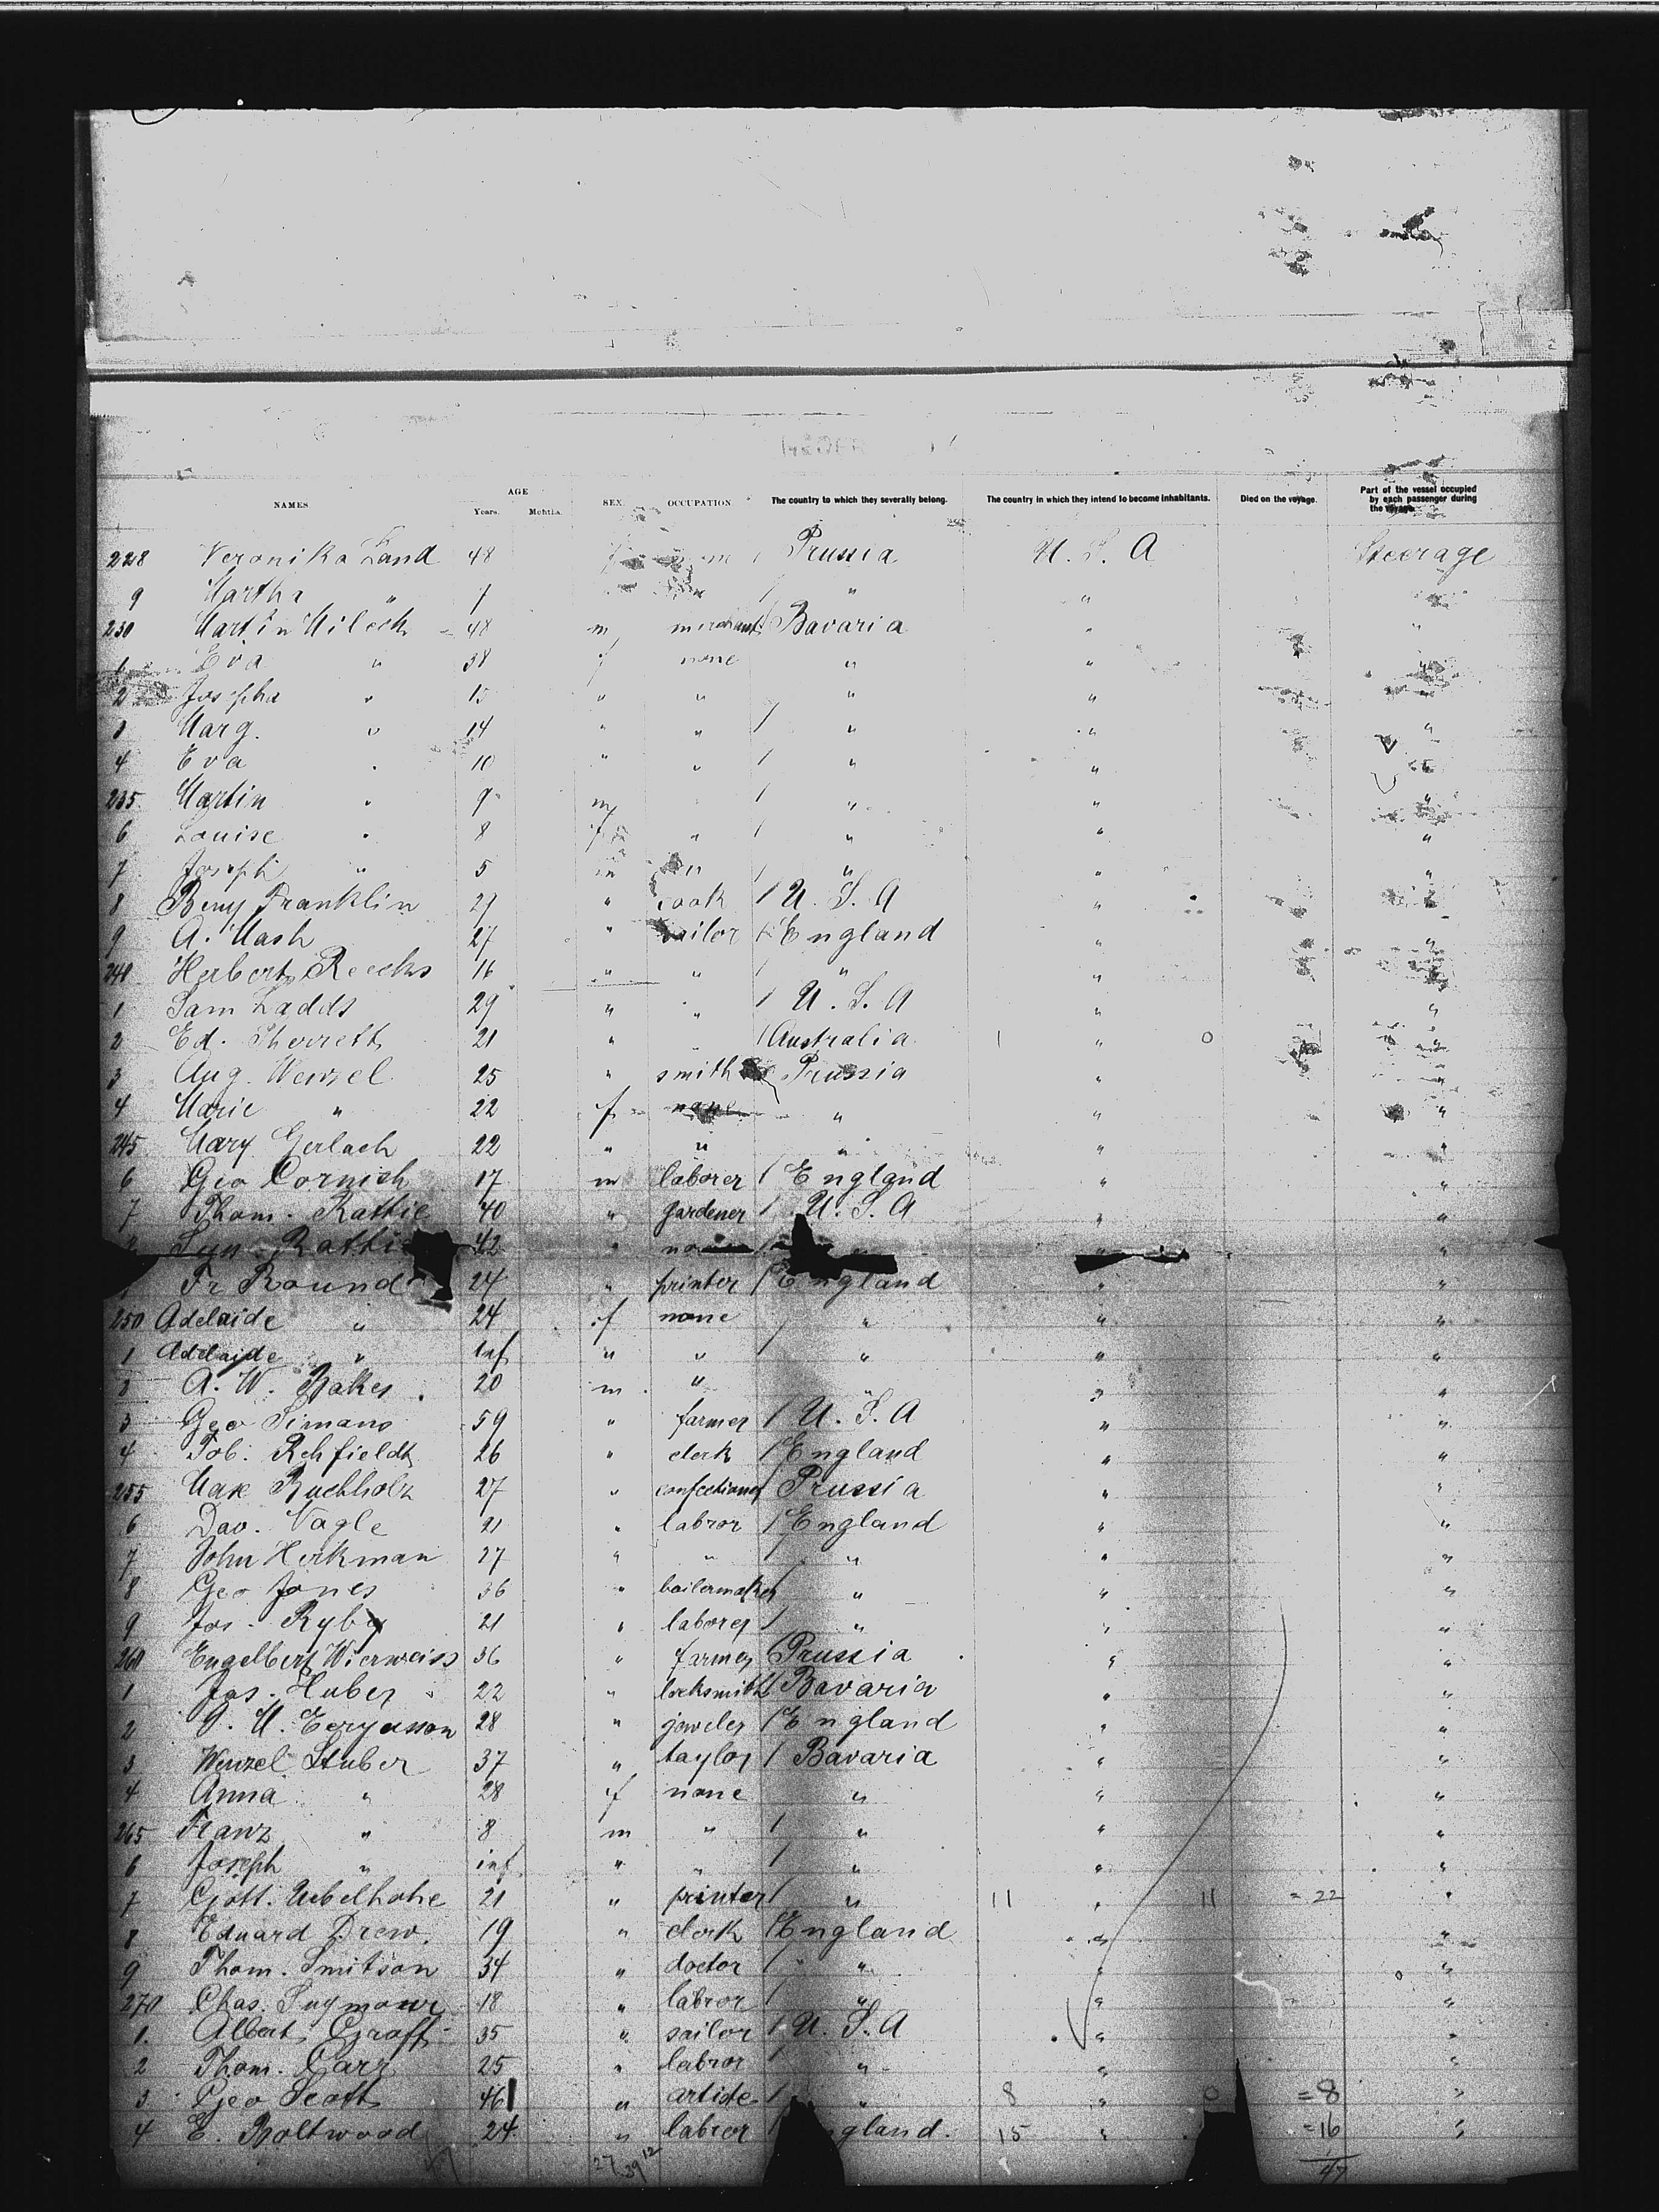 NAMES AGE SEX OCCUPATION The country to which they severally belong. The country in which they intend to become inhabitants. Died on the voyage. Part of the vessel occupied by each passenger during the voyage.
Years. Months.
228 Veronika Land 48 f Prussia U. S. A Steerage
9 Martha " " "
230 Martin 48 m merchant Bavaria " "
Eva " 38 f none " " "
2 Josepha " 15 " " " "
3 Marg. " 14 " " " " "
4 Eva " 10 " " " " "
235 Martin " 9 m " " "
6 Louise " 8 f " " " "
7 Joseph " 5 m " " " "
8 Benj Franklin 27 " cook U. S. A " "
9 A. Mash 27 " sailor England " "
240 Herbert Reecks 16 " " " " "
1 Sam Ladds 29 " " U. S. A " "
2 Ed. Sherrett 21 " " Australia 1 " 0 "
3 Aug. Wenzel 25 " smith Prussia " "
4 Marie " 22 f none " " "
245 Mary Gerlach 22 " " " " "
6 Geo Cornish 17 m laborer / England " "
7 Thom. Rattie 40 " gardener / U. S. A " "
42 " " "
Fr Round 24 " printer / England " "
250 Adelaide " 24 f none " " "
1 Adelaide " inf " " " " "
A. W. Baker 20 m " " " "
3 Geo Simans 59 " farmer / U. S. A " "
4 Tob. Rehfieldt 26 " clerk / England " "
255 Max Buchholz 27 " confectioner Prussia " "
6 Dav. Nagle 21 " labror / England " "
7 John Herkman 27 " " / " " "
8 Geo Jones 36 " boilermaker / " " "
9 Jos. Ryby 21 " laborer / " " "
260 Engelbert Wierweiss 36 " farmer Prussia " "
1 Jos. Huber 22 " locksmith / Bavaria " "
2 28 " jeweler / England " "
3 Wenzel Stuber 37 " taylor / Bavaria " "
4 Anna " 28 f none " " "
265 Franz " 8 m " / " " "
6 Joseph " inf " " / " " "
7 Gott. Uebelhohe 21 " printer / " 11 " 11 = 22 "
8 Eduard Drew. 19 " clerk / England " "
9 Thom. Smitson 34 " doctor / " " "
270 Chas. 18 " labror / " " "
1. Albert Graff 35 " sailor / U. S. A " "
2 Thom. Carr 25 " labror / " " "
3 Geo Scott 46 " artiste / " 8 " 0 = 8 "
4 E. Boltwood 24 " labror / gland. 15 " = 16 "
27 39 12 47